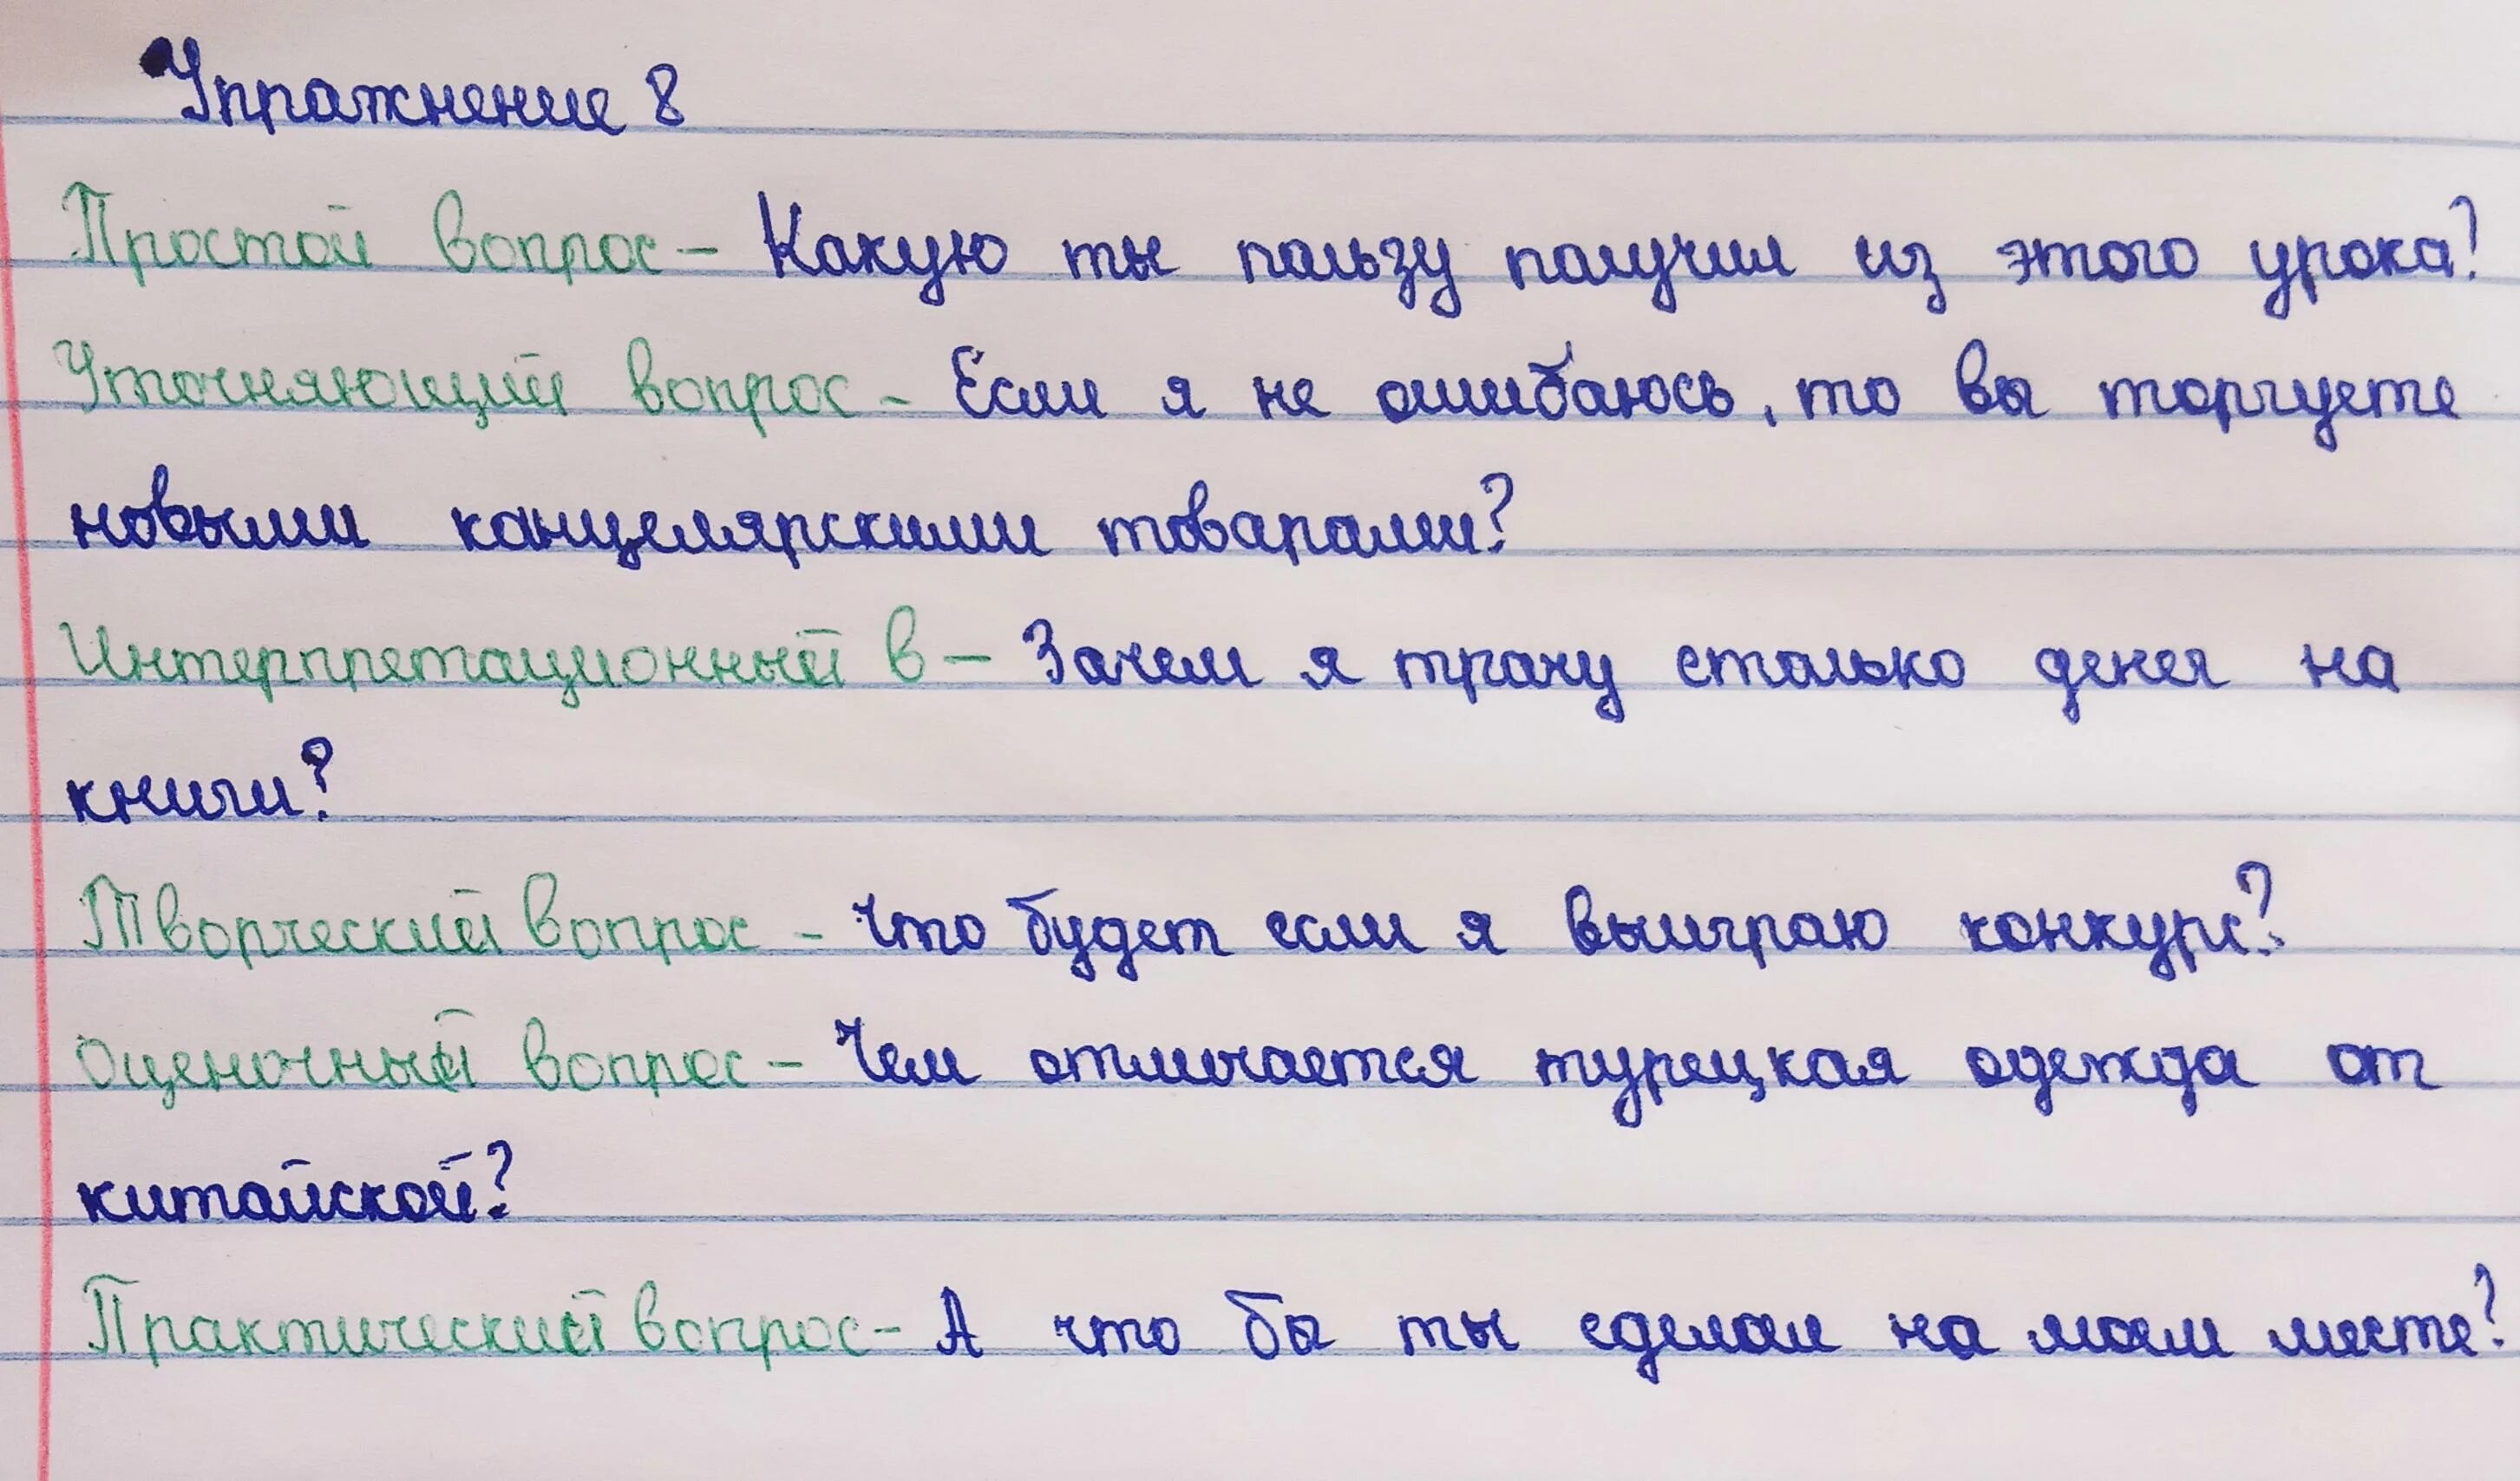 Упражнение 8
Простой вопрос - Какую ты пользу получил из этого урока?
Уточняющий вопрос - Если я не ошибаюсь, то вы торгуете
новыми канцелярскими товарами?
Интерпретационный в - Зачем я трачу столько денег на
книги?
Творческий вопрос - Что будет если я выиграю конкурс?
Оценочный вопрос - Чем отличается турецкая одежда от
китайской?
Практический вопрос - А что бы ты сделал на моем месте?